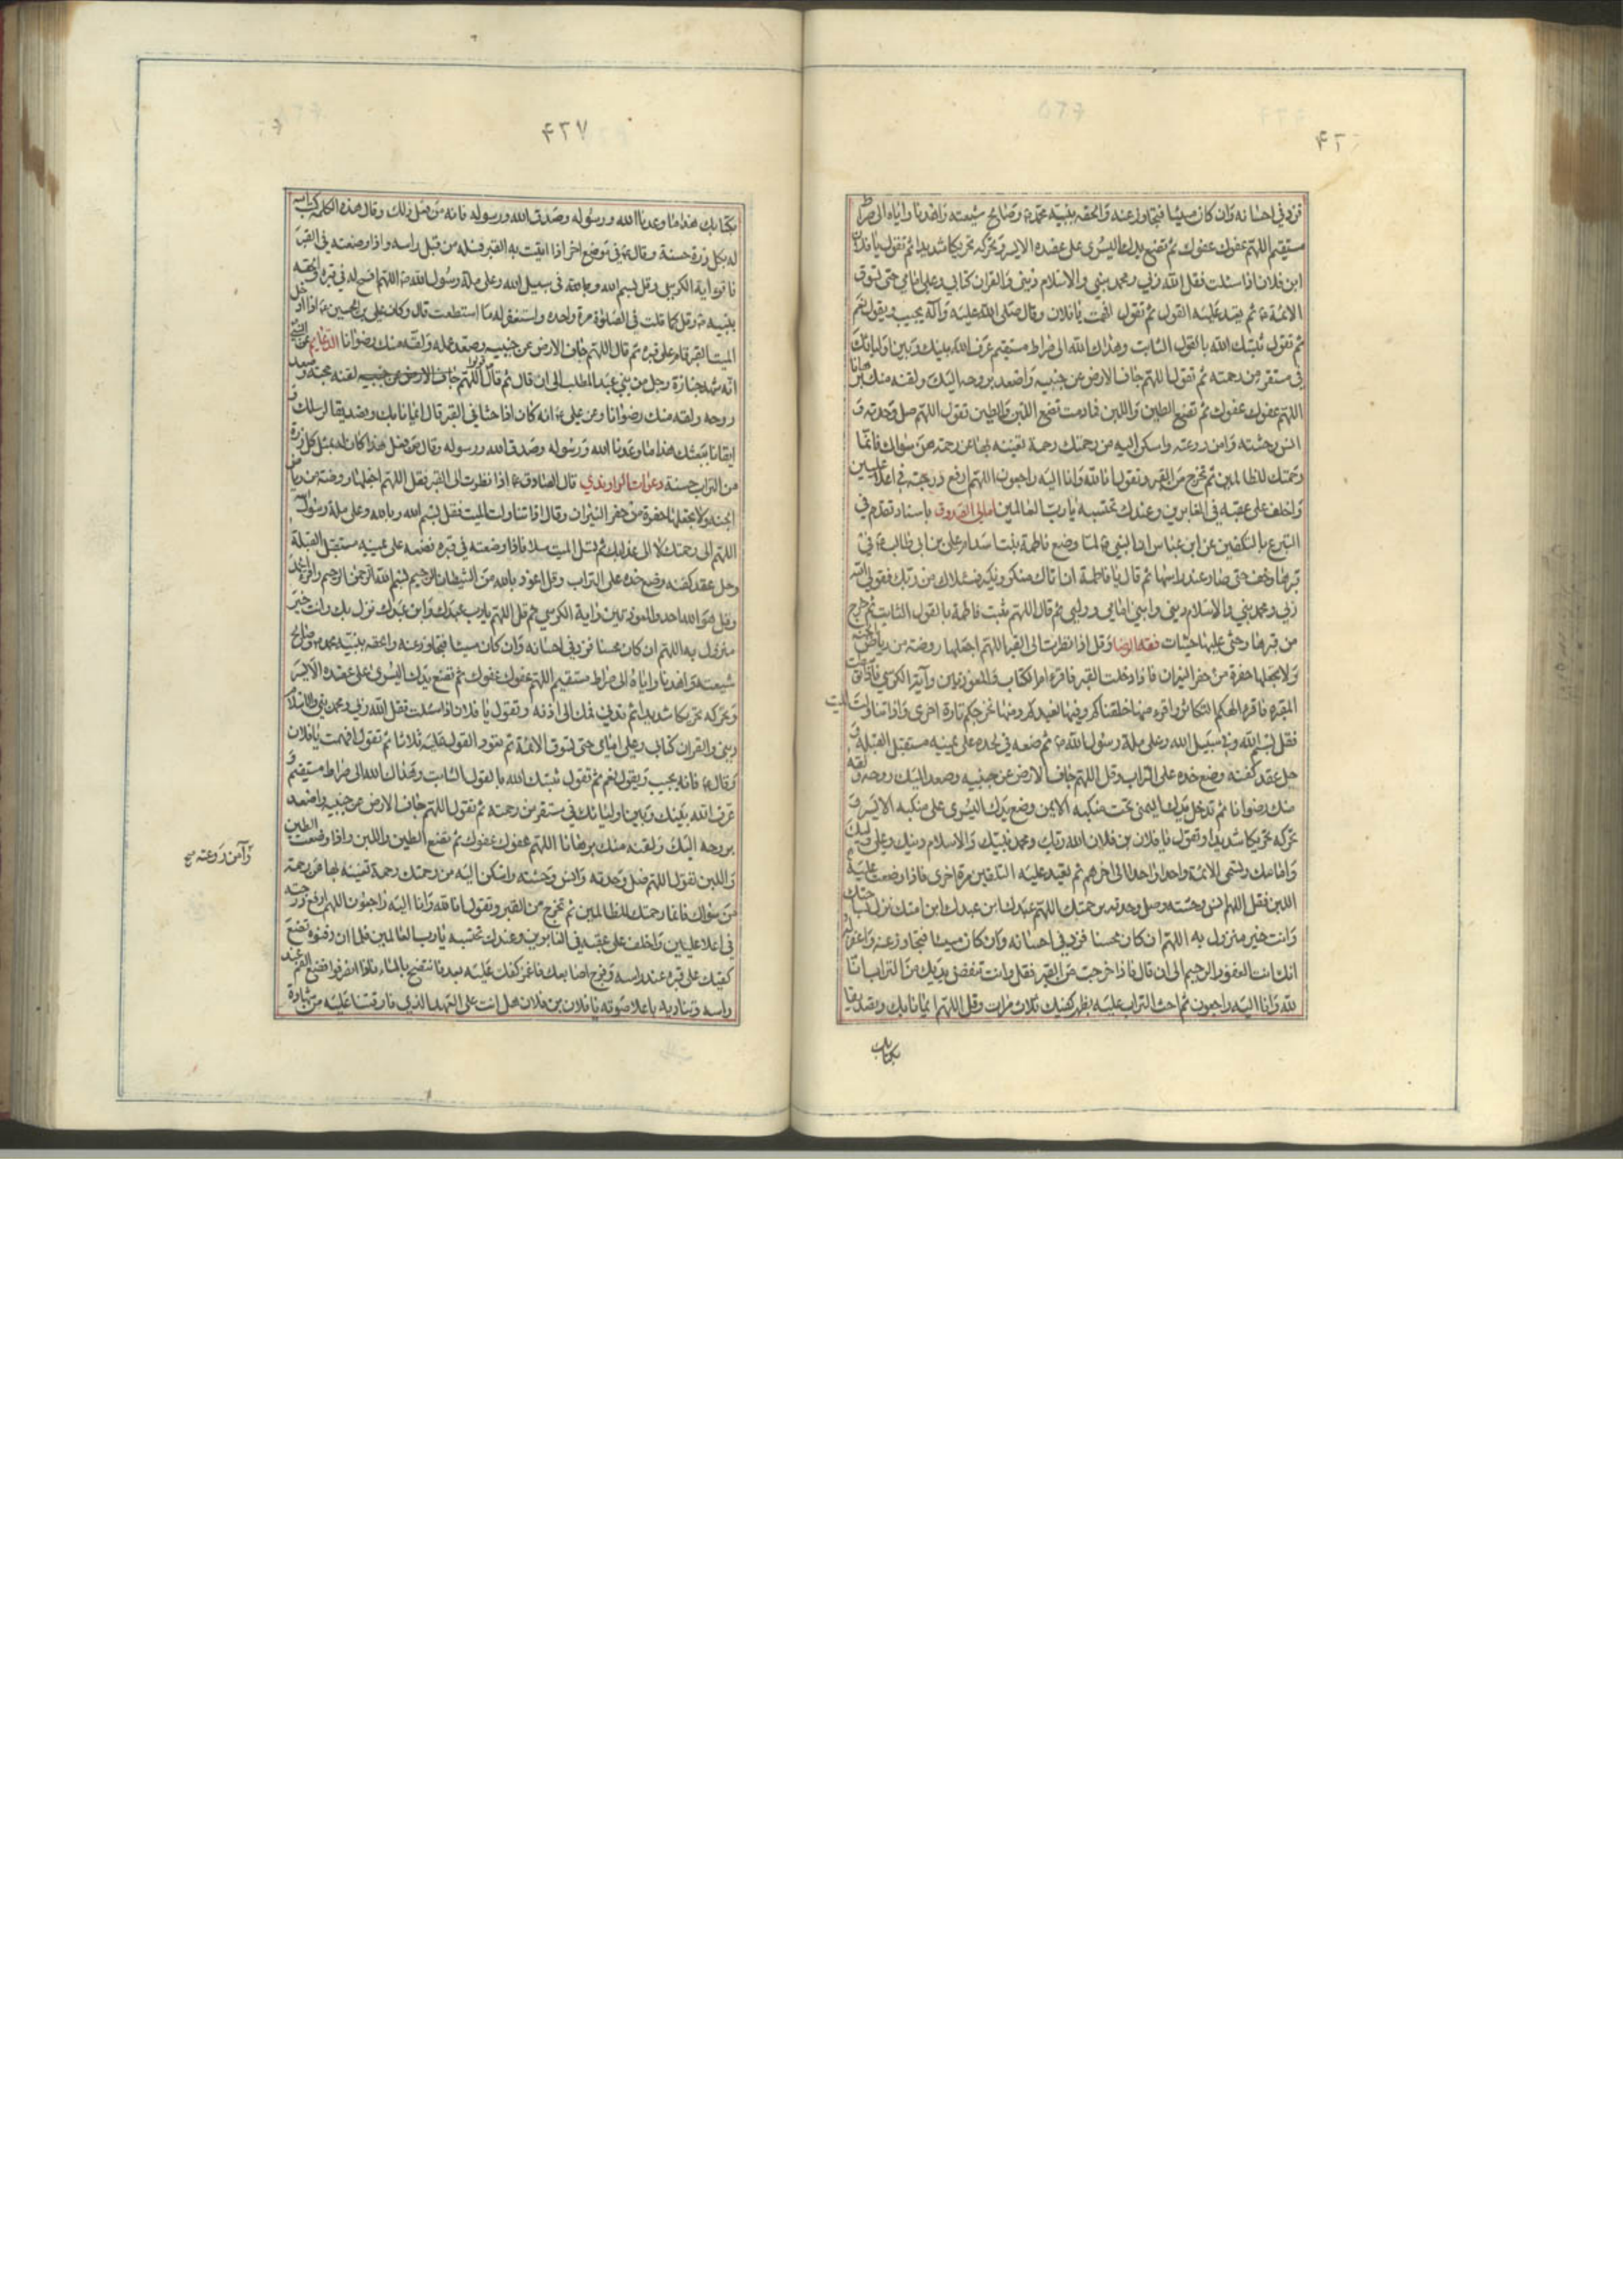 ۴۲
فزد في احسانه وان كان مسيئا فتجاوز عنه والحقه بنبيه محمد ص وصالح شيعته واهدنا واياه الى صراط
مستقيم اللهم عفوك عفوك ثم تضع يدك اليسرى على عضده الايسر وتحركه تحريكا شديدا ثم تقول يا فلان
ابن فلان اذا سئلت فقل الله ربي ومحمد نبيي والاسلام ديني والقران كتابي وعلي امامي حتى تسوق
الائمة ع ثم تعيد عليه القول ثم تقول افهمت يا فلان وقال صلى الله عليه وآله يجيب ويقول نعم
ثم تقول ثبتك الله بالقول الثابت وهداك الله الى صراط مستقيم عرف الله بينك وبين اوليائك
في مستقر من رحمته ثم تقول اللهم جاف الارض عن جنبيه واصعد بروحه اليك ولقنه منك برهانا
اللهم عفوك عفوك ثم تضع الطين واللبن فما دمت تضع اللبن والطين تقول اللهم صل وحدته و
انس وحشته وامن روعته واسكن اليه من رحمتك رحمة تغنيه بها عن رحمة من سواك فانما
رحمتك للظالمين ثم تخرج من القبر وتقول انا لله وانا اليه راجعون اللهم ارفع درجته في اعلا عليين
واخلف على عقبه في الغابرين وعندك نحتسبه يا رب العالمين امالي الصدوق باسناد تقدم في
التبرع بالتكفين عن ابن عباس ان النبي ص لما وضع فاطمة بنت اسد ام علي بن ابي طالب ع في
قبرها زحف حتى صار عند راسها ثم قال يا فاطمة ان اتاك منكر ونكير فسئلاك من ربك فقولي الله
ربي ومحمد نبيي والاسلام ديني وابني امامي ووليي ثم قال اللهم ثبت فاطمة بالقول الثابت ثم خرج
من قبرها وحثى عليها حثيات فقه الرضا وقل اذا نظرت الى القبر اللهم اجعلها روضة من رياض الجنة
ولا تجعلها حفرة من حفر النيران فاذا دخلت القبر فاقرء ام الكتاب والمعوذتين وآية الكرسي فاذا توسطت
المقبرة فاقرء الهيكم التكاثر واقرء منها خلقناكم وفيها نعيدكم ومنها نخرجكم تارة اخرى واذا تناولت الميت
فقل بسم الله وفي سبيل الله وعلى ملة رسول الله ص ثم ضعه في لحده على يمينه مستقبل القبلة و
حل عقد كفنه وضع خده على التراب وقل اللهم جاف الارض عن جنبيه وصعد اليك روحه ولقه
منك رضوانا ثم تدخل يدك اليمنى تحت منكبه الايمن وضع يدك اليسرى على منكبه الايسر و
تحركه تحريكا شديدا وتقول يا فلان بن فلان الله ربك ومحمد نبيك والاسلام دينك وعلي وليك
وامامك وتسمي الائمة واحدا واحدا الى اخرهم ثم تعيد عليه التلقين مرة اخرى فاذا وضعت عليه
اللبن فقل اللهم انس وحشته وصل وحدته برحمتك اللهم عبدك ابن عبدك ابن امتك نزل بساحتك
وانت خير منزول به اللهم ان كان محسنا فزد في احسانه وان كان مسيئا فتجاوز عنه واغفر له
انك انت الغفور الرحيم الى ان قال فاذا خرجت من القبر فقل وانت تنفض يديك من التراب انا
لله وانا اليه راجعون ثم احث التراب عليه بظهر كفيك ثلاث مرات وقل اللهم ايمانا بك وتصديقا
بكتابك
۴۲۷
بكتابك هذا ما وعدنا الله ورسوله وصدق الله ورسوله فانه من فعل ذلك وقال هذه الكلمة كتب الله
له بكل ذرة حسنة وقال ع في موضع اخر اذا اتيت به القبر فسله من قبل راسه واذا وضعته في القبر
فاقرء اية الكرسي وقل بسم الله وبالله وفي سبيل الله وعلى ملة رسول الله ص اللهم افسح له في قبره والحقه
بنبيه ص وقل كما قلت في الصلوة مرة واحدة واستغفر له ما استطعت قال وكان علي بن الحسين ع اذا ادخل
الميت القبر قام على قبره ثم قال اللهم جاف الارض عن جنبيه وصعد عمله ولقه منك رضوانا الدعايم
انه شهد جنازة رجل من بني عبد المطلب الى ان قال ثم قال اللهم جاف الارض عن جنبيه لقنه حجته وصعد
روحه ولقه منك رضوانا وعن علي ع انه كان اذا حثا في القبر قال ايمانا بك وتصديقا لرسلك و
ايقانا ببعثك هذا ما وعدنا الله ورسوله وصدق الله ورسوله وقال من فعل هذا كان له بمثل كل ذرة
من التراب حسنة دعوات الراوندي قال الصادق ع اذا نظرت الى القبر فقل اللهم اجعلها روضة من رياض
الجنة ولا تجعلها حفرة من حفر النيران وقال اذا تناولت الميت فقل بسم الله وبالله وعلى ملة رسول الله
اللهم الى رحمتك لا الى عذابك ثم تسل الميت سلا فاذا وضعته في قبره فضعه على يمينه مستقبل القبلة
وحل عقد كفنه وضع خده على التراب وقل اعوذ بالله من الشيطان الرجيم بسم الله الرحمن الرحيم واقرء الحمد
وقل هو الله احد والمعوذتين واية الكرسي ثم قل اللهم يا رب عبدك وابن عبدك نزل بك وانت خير
منزول به اللهم ان كان محسنا فزد في احسانه وان كان مسيئا فتجاوز عنه والحقه بنبيه محمد ص وصالح
شيعته واهدنا واياه الى صراط مستقيم اللهم عفوك عفوك ثم تضع يدك اليسرى على عضده الايسر
وتحركه تحريكا شديدا ثم تدني فمك الى اذنه وتقول يا فلان اذا سئلت فقل الله ربي ومحمد نبيي والاسلام
ديني والقران كتابي وعلي امامي حتى تسوق الائمة ثم تعود القول عليه ثلاثا ثم تقول افهمت يا فلان
وقال ع فانه يجيب ويقول نعم ثم تقول ثبتك الله بالقول الثابت وهداك الله الى صراط مستقيم و
عرف الله بينك وبين اوليائك في مستقر من رحمته ثم تقول اللهم جاف الارض عن جنبيه واصعد
بروحه اليك ولقنه منك برهانا اللهم عفوك عفوك ثم تضع الطين واللبن واذا وضعت الطين
واللبن تقول اللهم صل وحدته وانس وحشته واسكن اليه من رحمتك رحمة تغنيه بها عن رحمة
وآمن روعته صح
من سواك فانما رحمتك للظالمين ثم تخرج من القبر وتقول انا لله وانا اليه راجعون اللهم ارفع درجته
في اعلا عليين واخلف على عقبه في الغابرين وعندك نحتسبه يا رب العالمين فلما ان دفنوه تضع
كفيك على قبره عند راسه وفرج اصابعك فاغمز كفك عليه بعد ما تنضح بالماء فاذا انصرفوا فضع الفم عند
راسه وتناديه باعلا صوته يا فلان بن فلان هل انت على العهد الذي فارقتنا عليه من شهادة